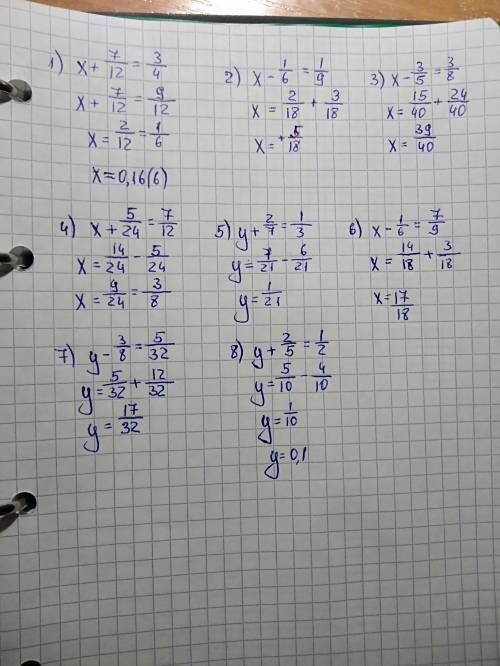 1) x + 7/12 = 3/4
x + 7/12 = 9/12
x = 2/12 = 1/6
x = 0,16(6)
2) x - 1/6 = 1/9
x = 2/18 + 3/18
x = 5/18
3) x - 3/5 = 3/8
x = 15/40 + 24/40
x = 39/40
4) x + 5/24 = 7/12
x = 14/24 - 5/24
x = 9/24 = 3/8
5) y + 2/7 = 1/3
y = 7/21 - 6/21
y = 1/21
6) x - 1/6 = 7/9
x = 14/18 + 3/18
x = 17/18
7) y - 3/8 = 5/32
y = 5/32 + 12/32
y = 17/32
8) y + 2/5 = 1/2
y = 5/10 - 4/10
y = 1/10
y = 0,1